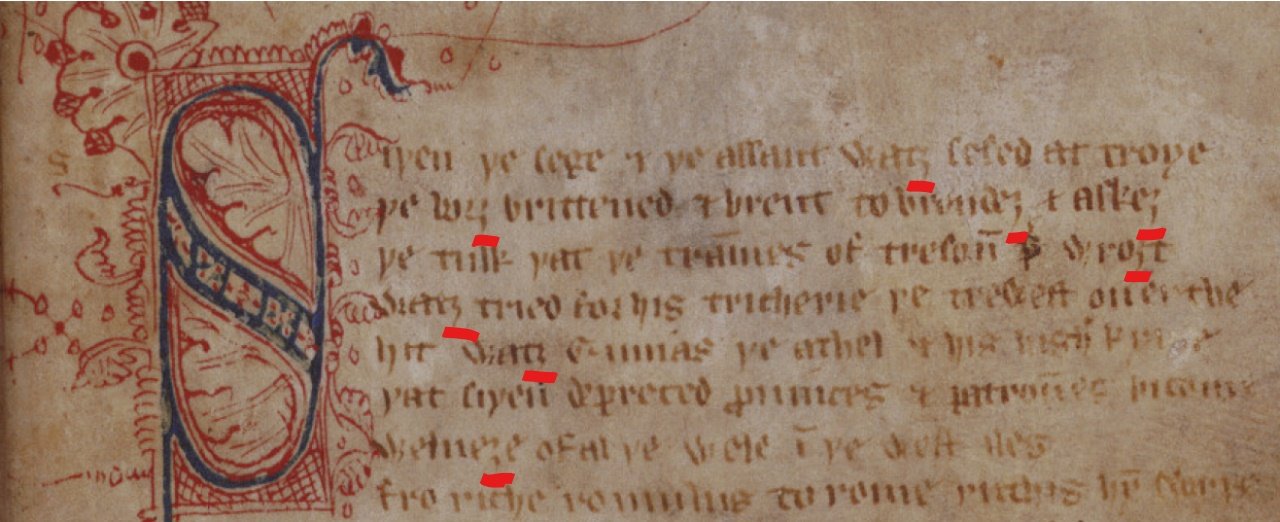 Siþen þe sege & þe assaut watȝ sesed at troye
þe borȝ brittened & brent to brondeȝ & askeȝ
þe tulk þat þe tram̄es of tresoūn þ̉ wroȝt
watȝ tried for his tricherie þe trewest on erthe
hit watȝ Ennias þe athel & his highe kynde
þat siþen depreced ꝓuinces & patroūes bicome
welneȝe of al þe wele ī þe west iles
fro riche romulus to rome ricchis hȳ swyþe